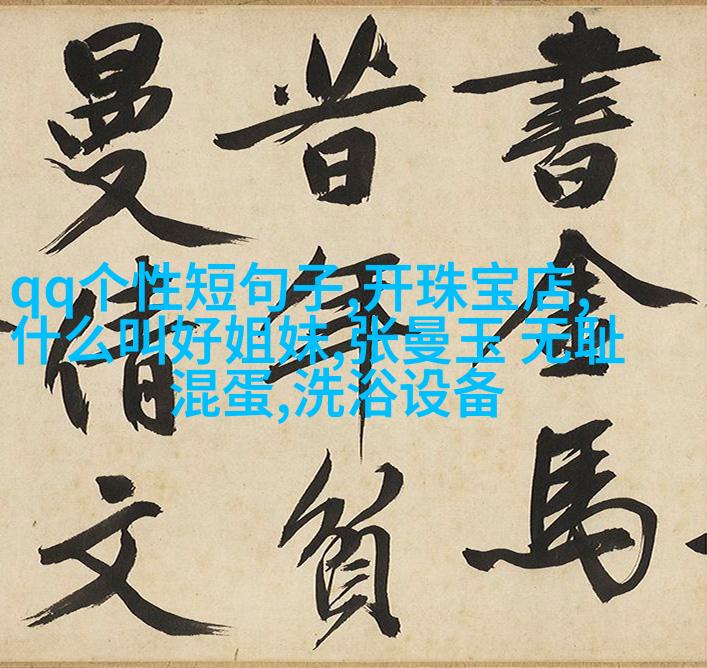 書金馬
昔年
曼倩文
qq个性短句子,开珠宝店,
什么叫好姐妹,张曼玉 无耻
混蛋,洗浴设备